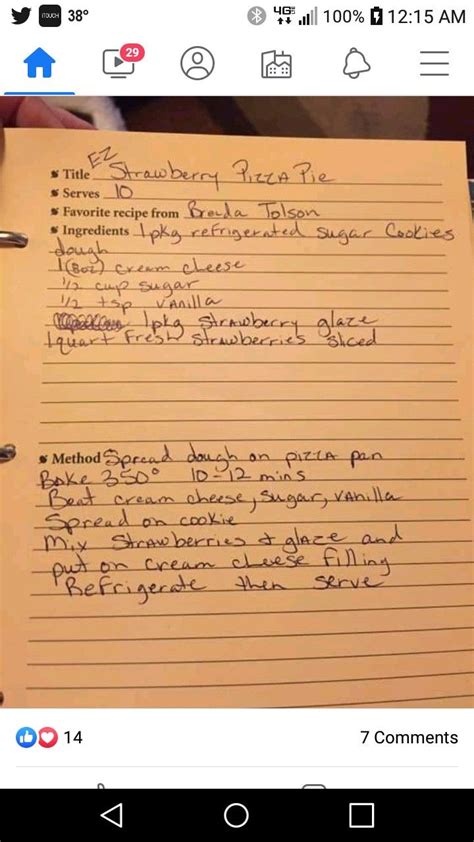 iTOUCH 38° 4G 100% 12:15 AM
29
EZ
Title Strawberry Pizza Pie
Serves 10
Favorite recipe from Brenda Tolson
Ingredients 1 pkg refrigerated sugar Cookies
dough
1 (8oz) cream cheese
1/2 cup sugar
1/2 tsp vanilla
1 pkg strawberry glaze
1 quart fresh strawberries sliced
Method Spread dough on pizza pan
Bake 350° 10-12 mins
Beat cream cheese, sugar, vanilla
Spread on cookie
Mix strawberries & glaze and
put on cream cheese filling
Refrigerate then serve
14 7 Comments